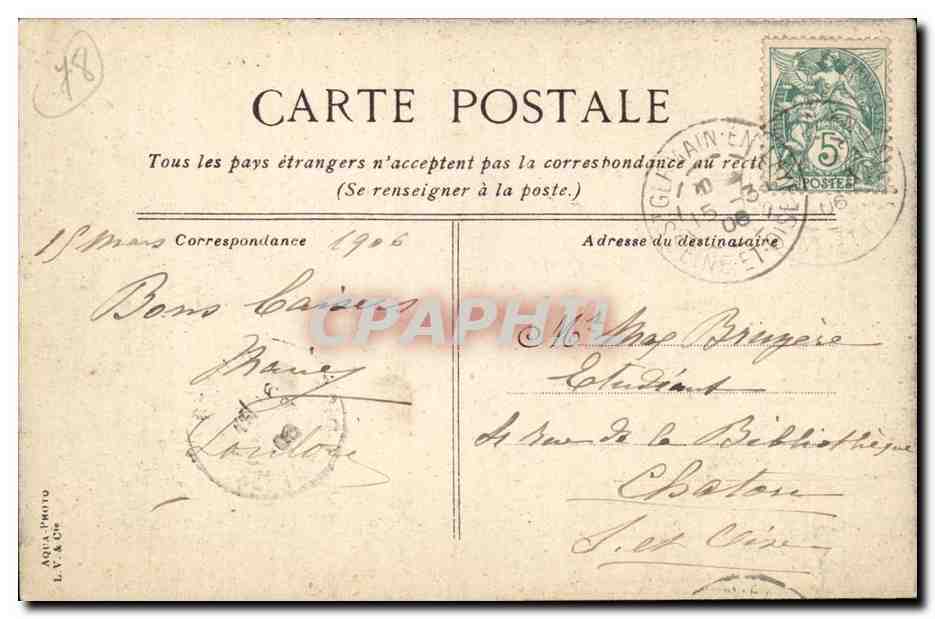 78
CARTE POSTALE
Tous les pays étrangers n'acceptent pas la correspondance au recto
(Se renseigner à la poste.)
5c
POSTES
ST GERMAIN-EN-LAYE
15 06
SEINE-ET-OISE
15 Mars 1906
Correspondance
Adresse du destinataire
Bons Baisers
Marie
Mr Max Bruyère
Etudiant
rue de la Bibliothèque
Chatou
S. et Oise
CPAPHIL
AQUA-PHOTO
L. V. & Cie